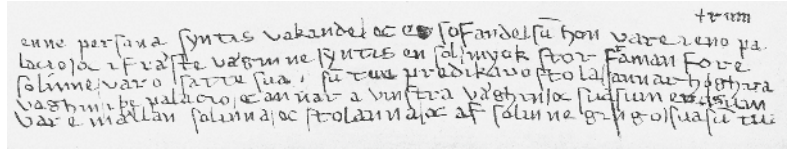 trum
enne persana syntis vakande oc ey sofande sū hon vare i eno pa
lacio oc i fræste væginne syntis en sol myok stor fāman fore
solinne varo satte sua sū tue predikarostola annar høghra
væghin i þe palacio oc annar a vinstra væghin oc suasum
vare mællan solinna oc stolanna oc af solinne gingo sua sū tui